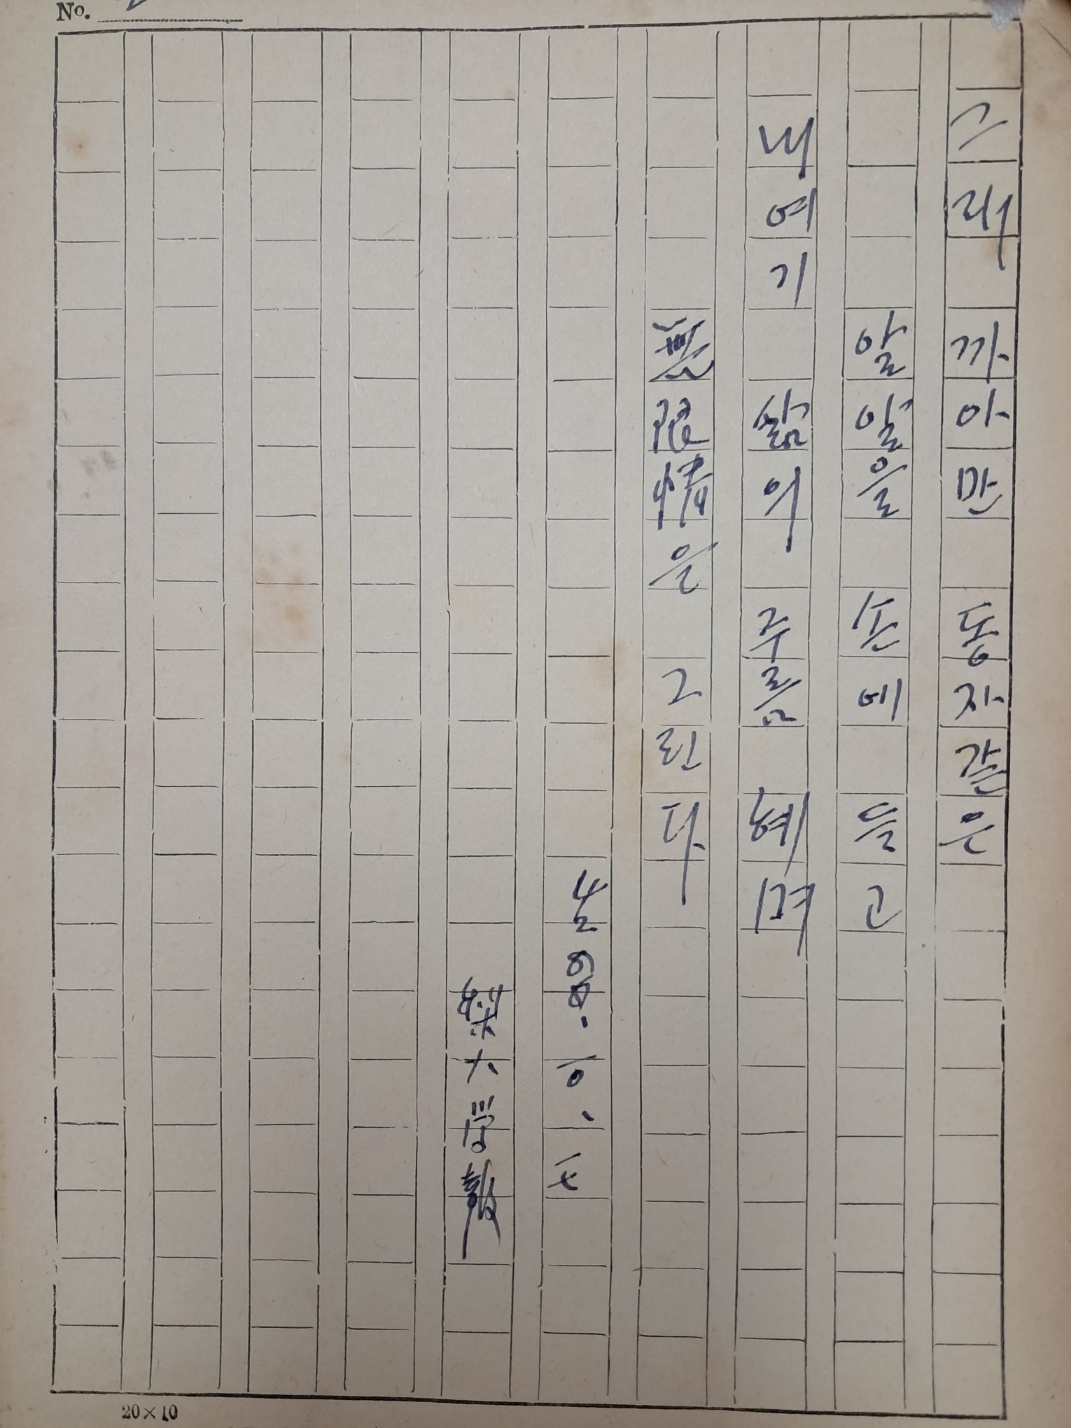 No.
그래 까아만 동자같은
알알을 손에 들고
내여기 삶의 주름 헤며
無限情은 그린다
梨大学報
20×10